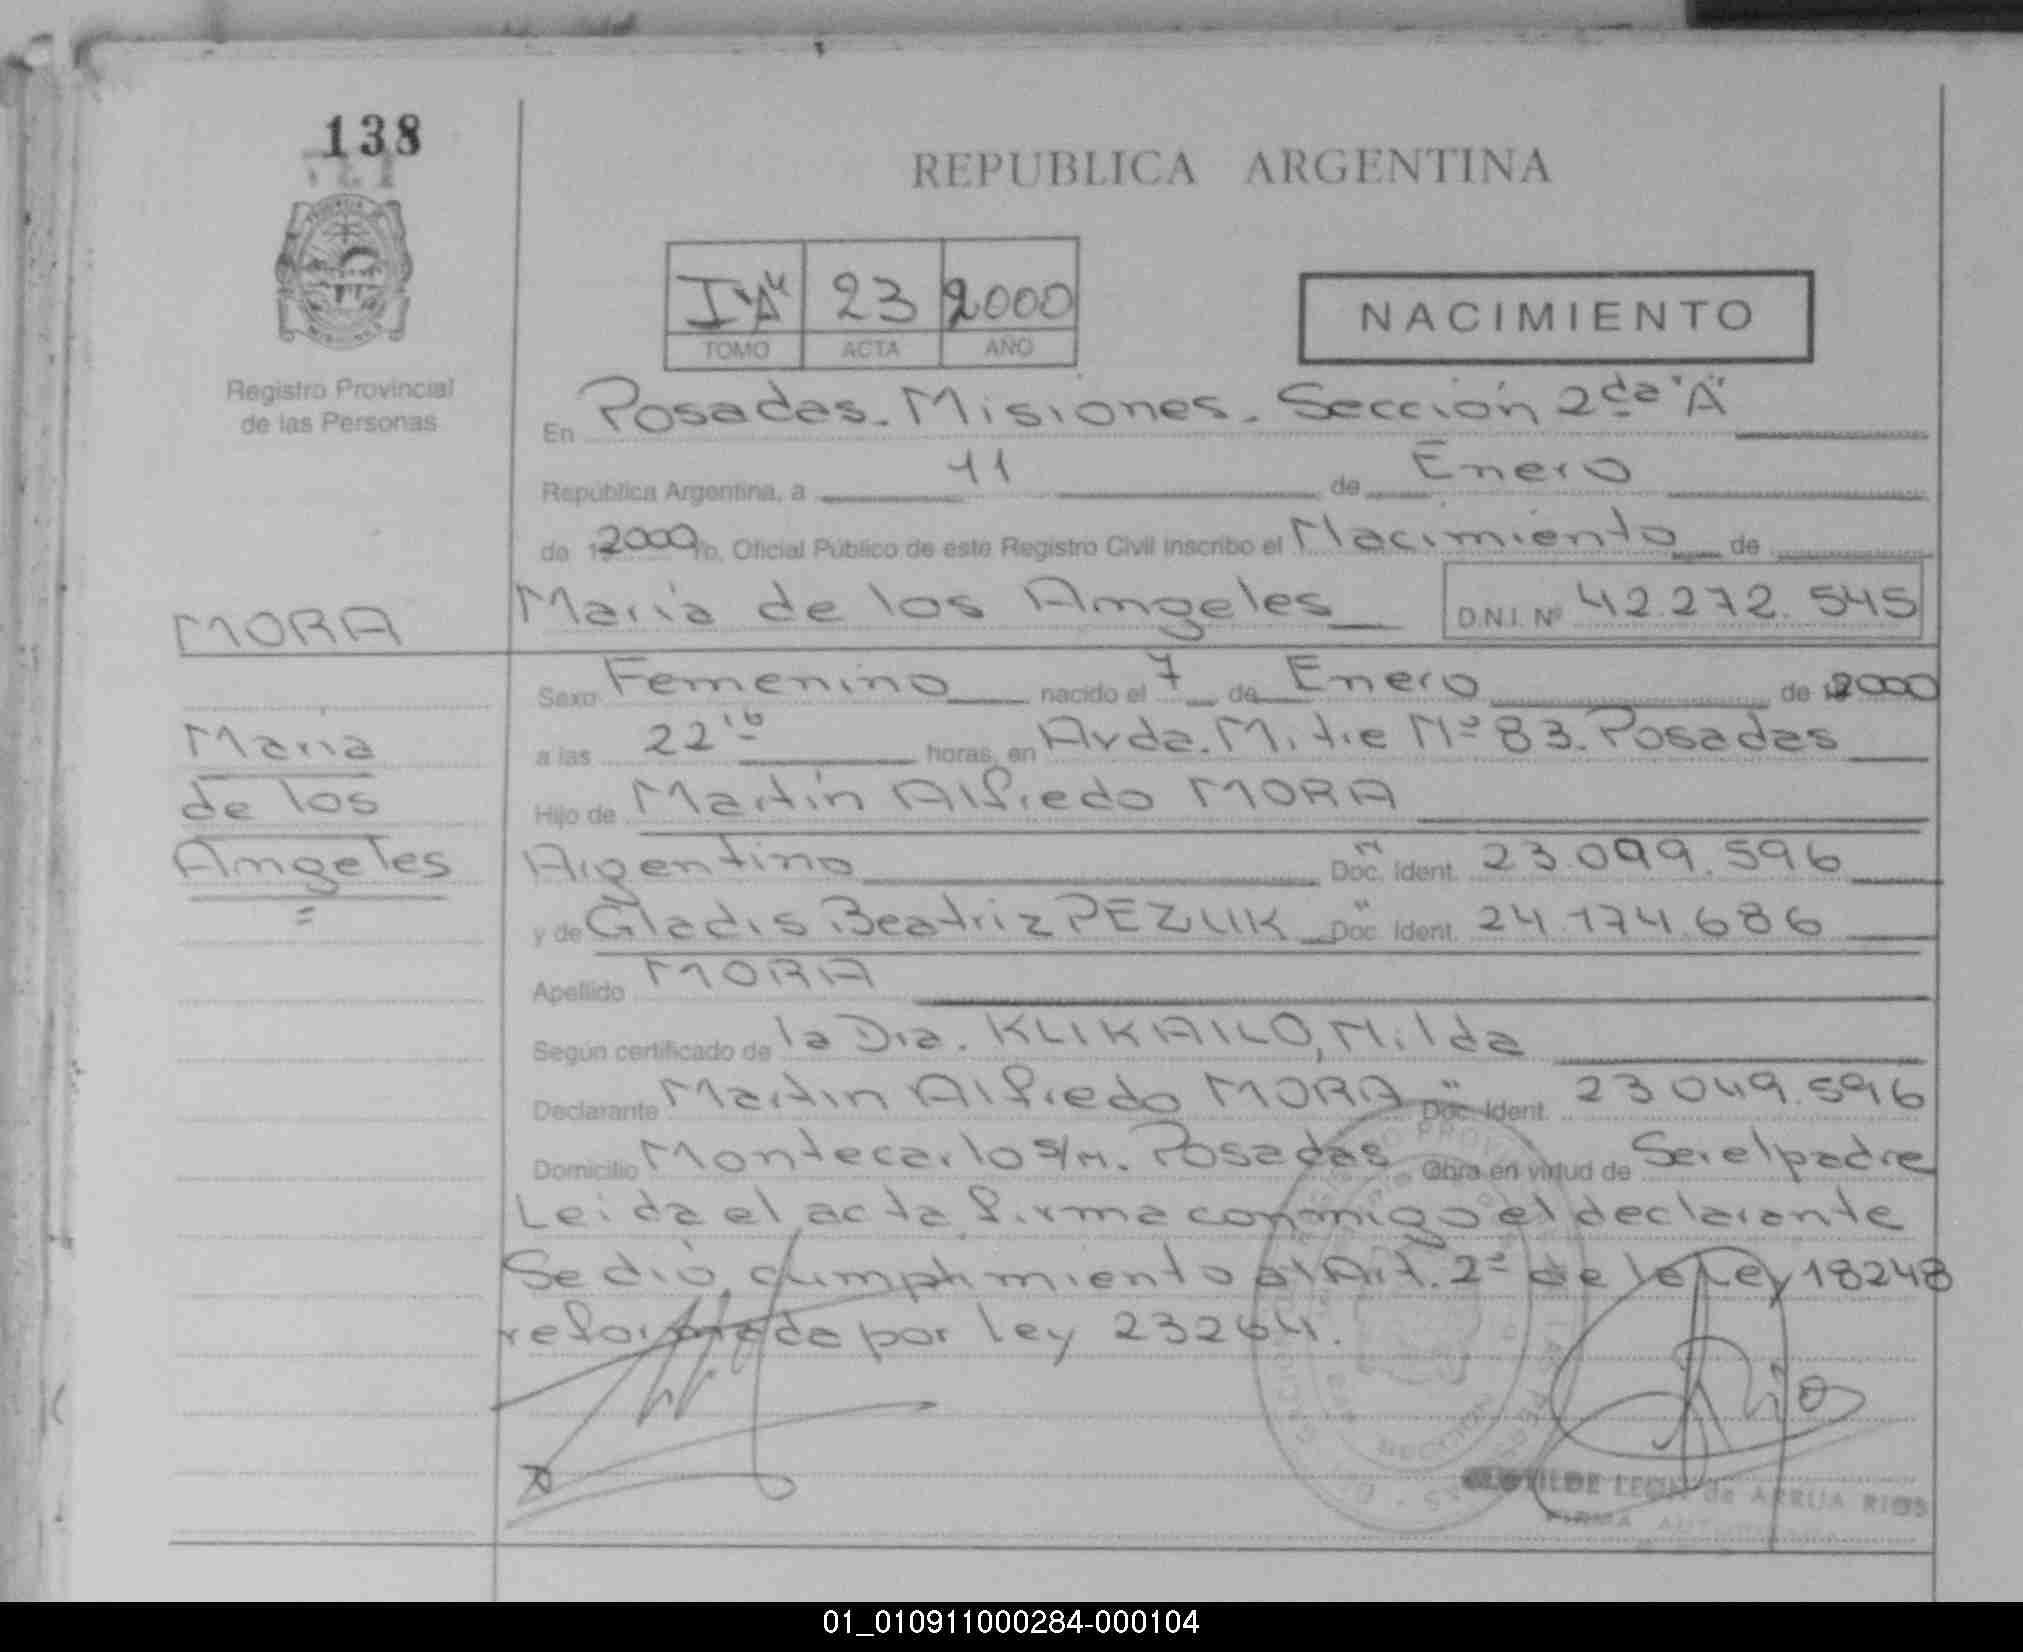 138
REPUBLICA ARGENTINA
I "A" 23 2000
TOMO ACTA AÑO
NACIMIENTO
Registro Provincial
de las Personas
En Posadas. Misiones. Sección 2da "A"
República Argentina, a 11 de Enero
de 2000 yo, Oficial Público de este Registro Civil inscribo el Nacimiento de
MORA
María de los Angeles D.N.I. Nº 42.272.545
Sexo Femenino nacido el 7 de Enero de 2000
María
a las 22 horas, en Avda. Mitre Nº 83. Posadas
de los
Hijo de Martín Alfredo MORA
Angeles
Argentino Doc. Ident. 23.099.596
y de Gladis Beatriz PEZUK Doc. Ident. 24.174.686
Apellido MORA
Según certificado de la Dra. KLIKAILO, Nilda
Declarante Martin Alfredo MORA Doc. Ident. 23 049.596
Domicilio Montecarlo s/n. Posadas Obra en virtud de Ser el padre
Leida el acta firma conmigo el declarante
Se dió cumplimiento al Art. 2º de la Ley 18248
reformada por ley 23264.
Rios
CLOTILDE LEON de ARRUA RIOS
FIRMA AUTORIZADA
01_010911000284-000104